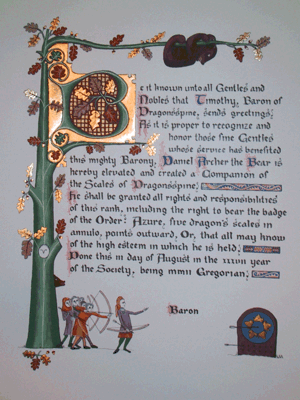 Be it known unto all Gentles and
Nobles that Timothy, Baron of
Dragonsspine, sends greetings.
As it is proper to recognize and
honor those fine Gentles
whose service has benefited
this mighty Barony, Daniel Archer the Bear is
hereby elevated and created a Companion of
the Scales of Dragonsspine;
He shall be granted all rights and responsibilities
of this rank, including the right to bear the badge
of the Order: Azure, five dragon's scales in
annulo, points outward, Or, that all may know
of the high esteem in which he is held;
Done this in day of August in the
of the Society, being mmii Gregorian;
Baron